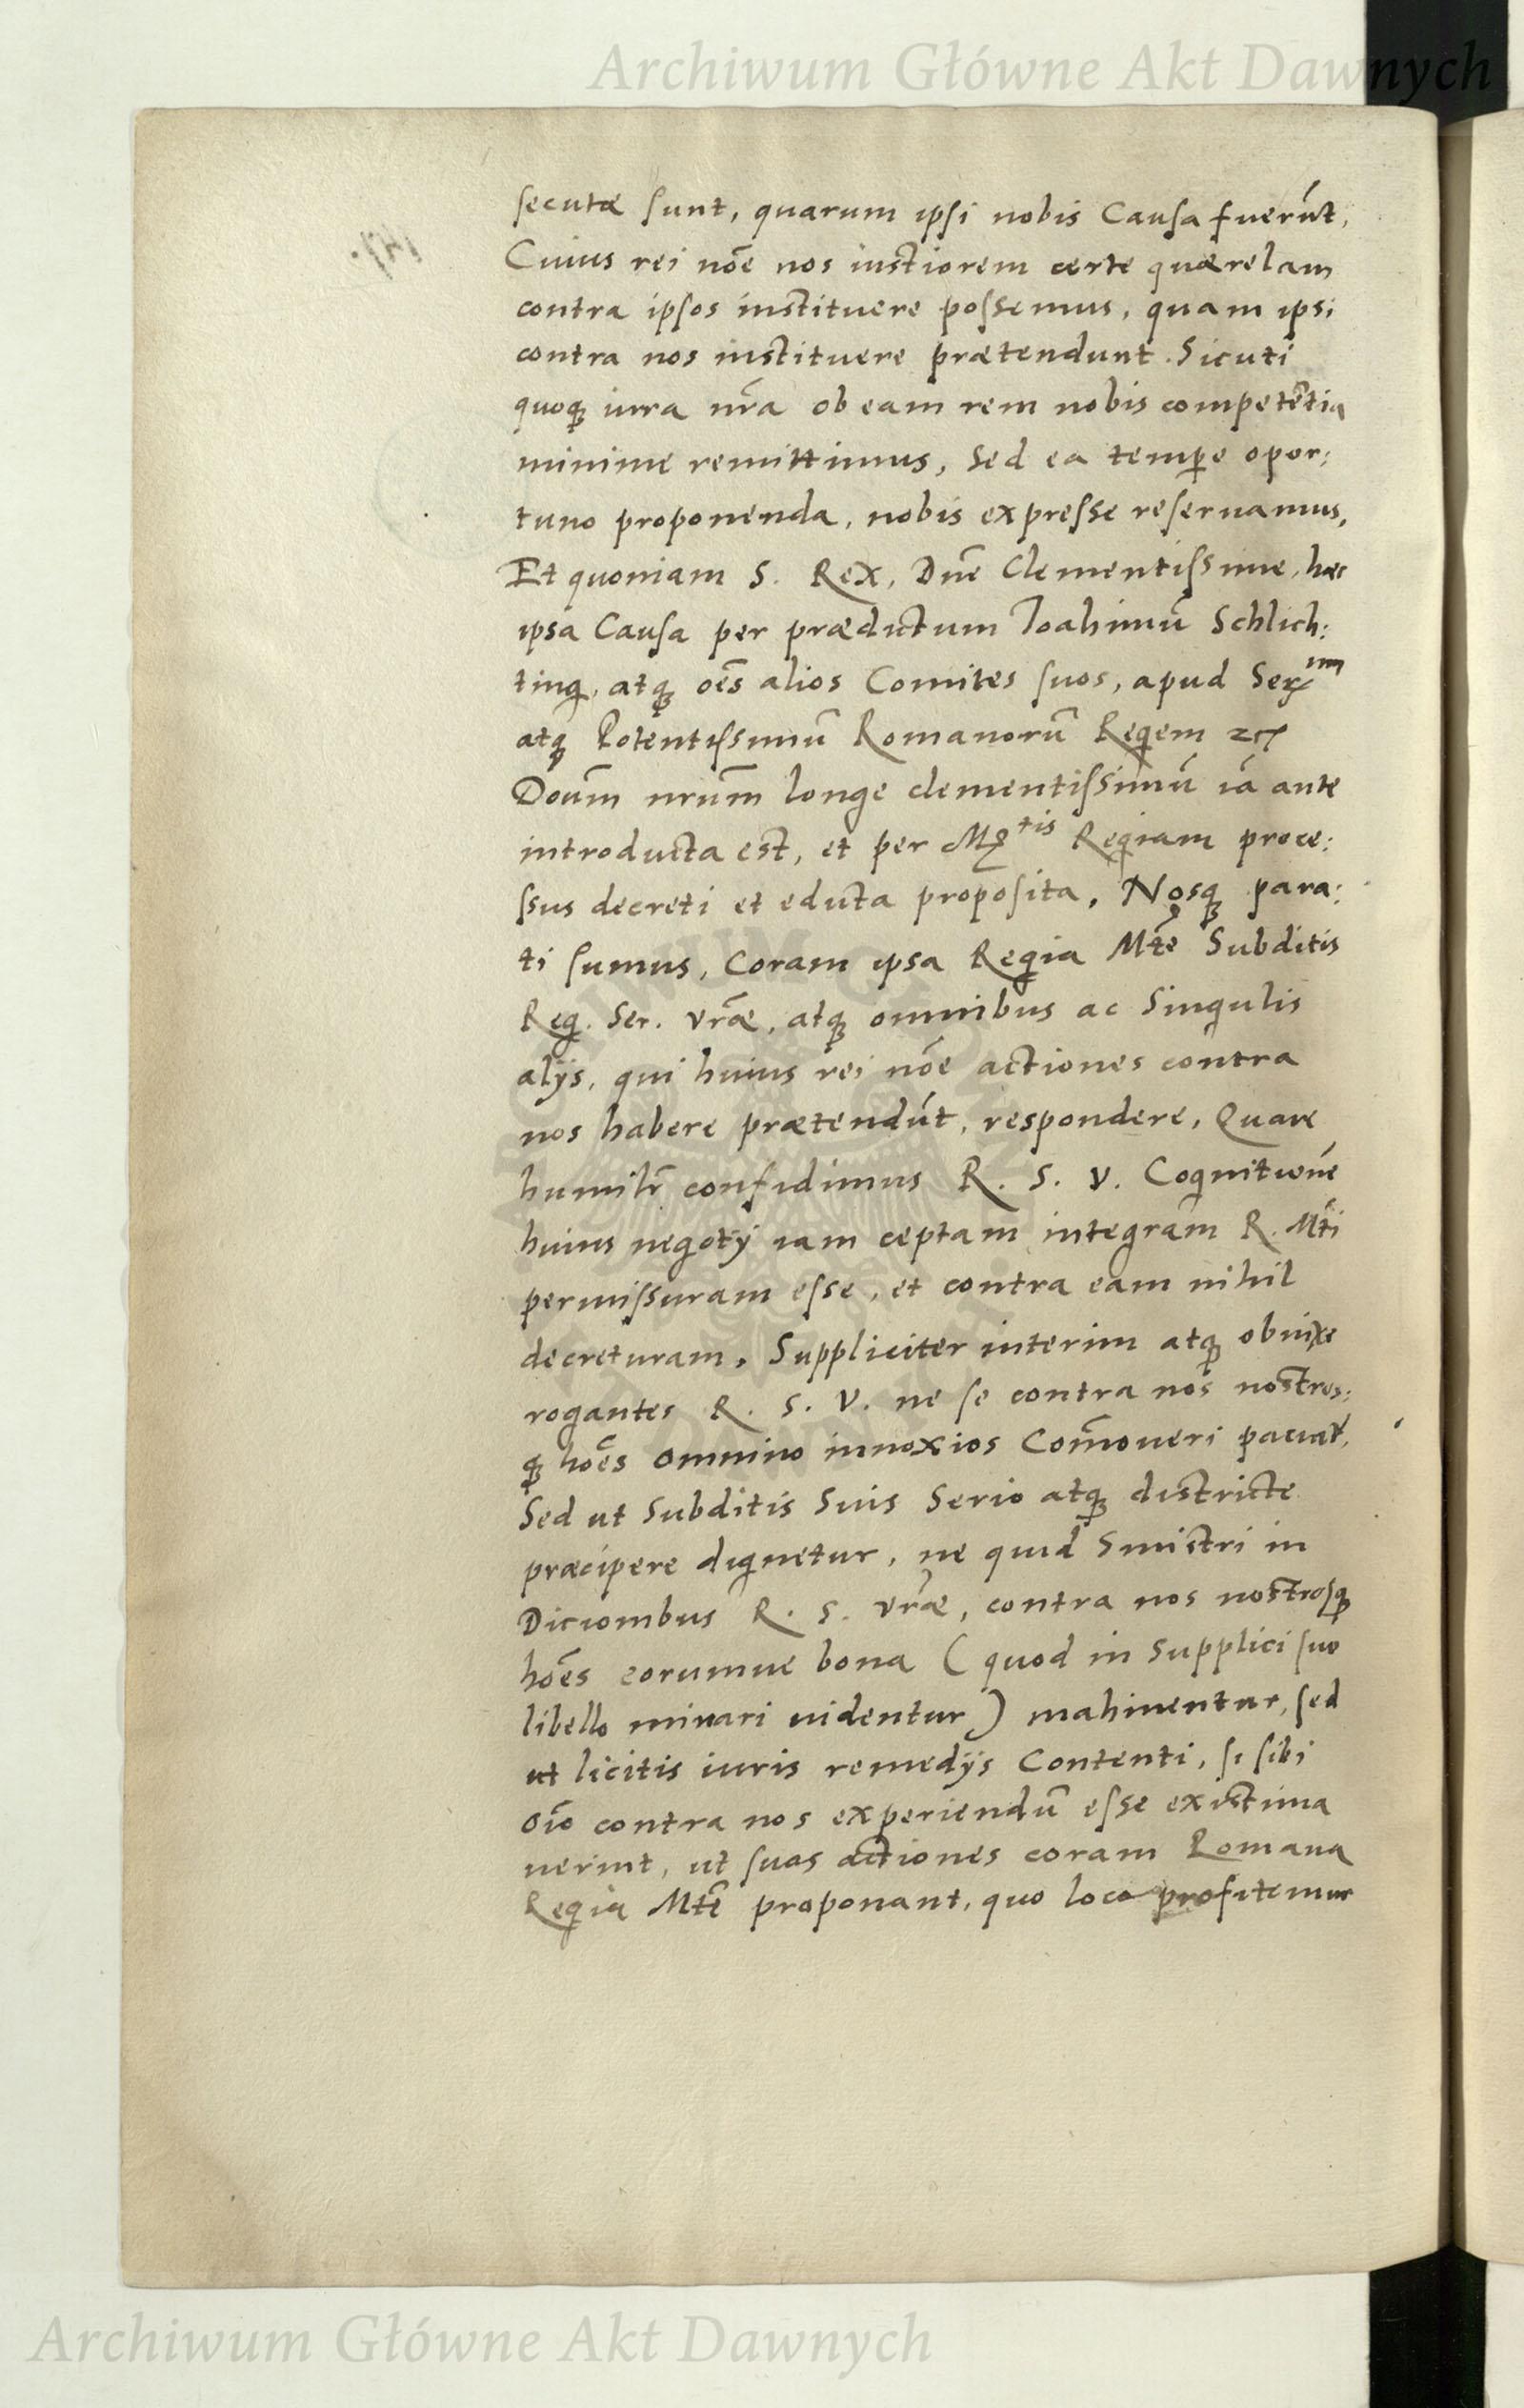 Archiwum Główne Akt Dawnych
secutæ sunt, quarum ipsi nobis Causa fuerūt,
Cuius rei nōe nos iustiorem certe quærelam
contra ipsos instituere possemus, quam ipsi
contra nos instituere prætendunt. Sicuti
quoqꝫ iura nr̃a ob eam rem nobis competētia
minime remittimus, sed ea tempe opor:
tuno proponenda, nobis expresse reseruamus,
Et quoniam S. Rex, Dn̄e Clementissime, hæc
ipsa Causa per prædictum Joahimū Schlich:
ting, atqꝫ oēs alios Comites suos, apud Ser
atqꝫ Potentissimū Romanorū Regem
Dom̄ nrūm longe clementissimū iā ante
introducta est, et per Regiam proce:
ssus decreti et educta proposita, Nosqꝫ para:
ti sumus, Coram ipsa Regia Mt̄e Subditis
Reg. Ser. vr̃æ, atqꝫ omnibus ac Singulis
alijs, qui huius rei nōe actiones contra
nos habere prætendūt, respondere, Quare
humilr̄ confidimus R. S. V. Cognitionē
huius negotij iam ceptam integram R. Mt̄i
permissuram esse, et contra eam nihil
decreturam, Suppliciter interim atqꝫ obnixe
rogantes R. S. V. ne se contra nos nostros:
qꝫ hoēs omnino innoxios Com̄oueri paciat̄,
Sed ut Subditis Suis Serio atqꝫ districte
præcipere dignetur, ne quid Sinistri in
Dicionibus R. S. vr̃æ, contra nos nostrosqꝫ
hoēs eorumue bona (quod in Supplici suo
libello minari uidentur) mahinentur, sed
ut licitis iuris remedijs Contenti, si sibi
oīo contra nos experiendū esse existima
uerint, ut suas actiones coram Romana
Regia Mt̄e proponant, quo loco profitemur
Archiwum Główne Akt Dawnych